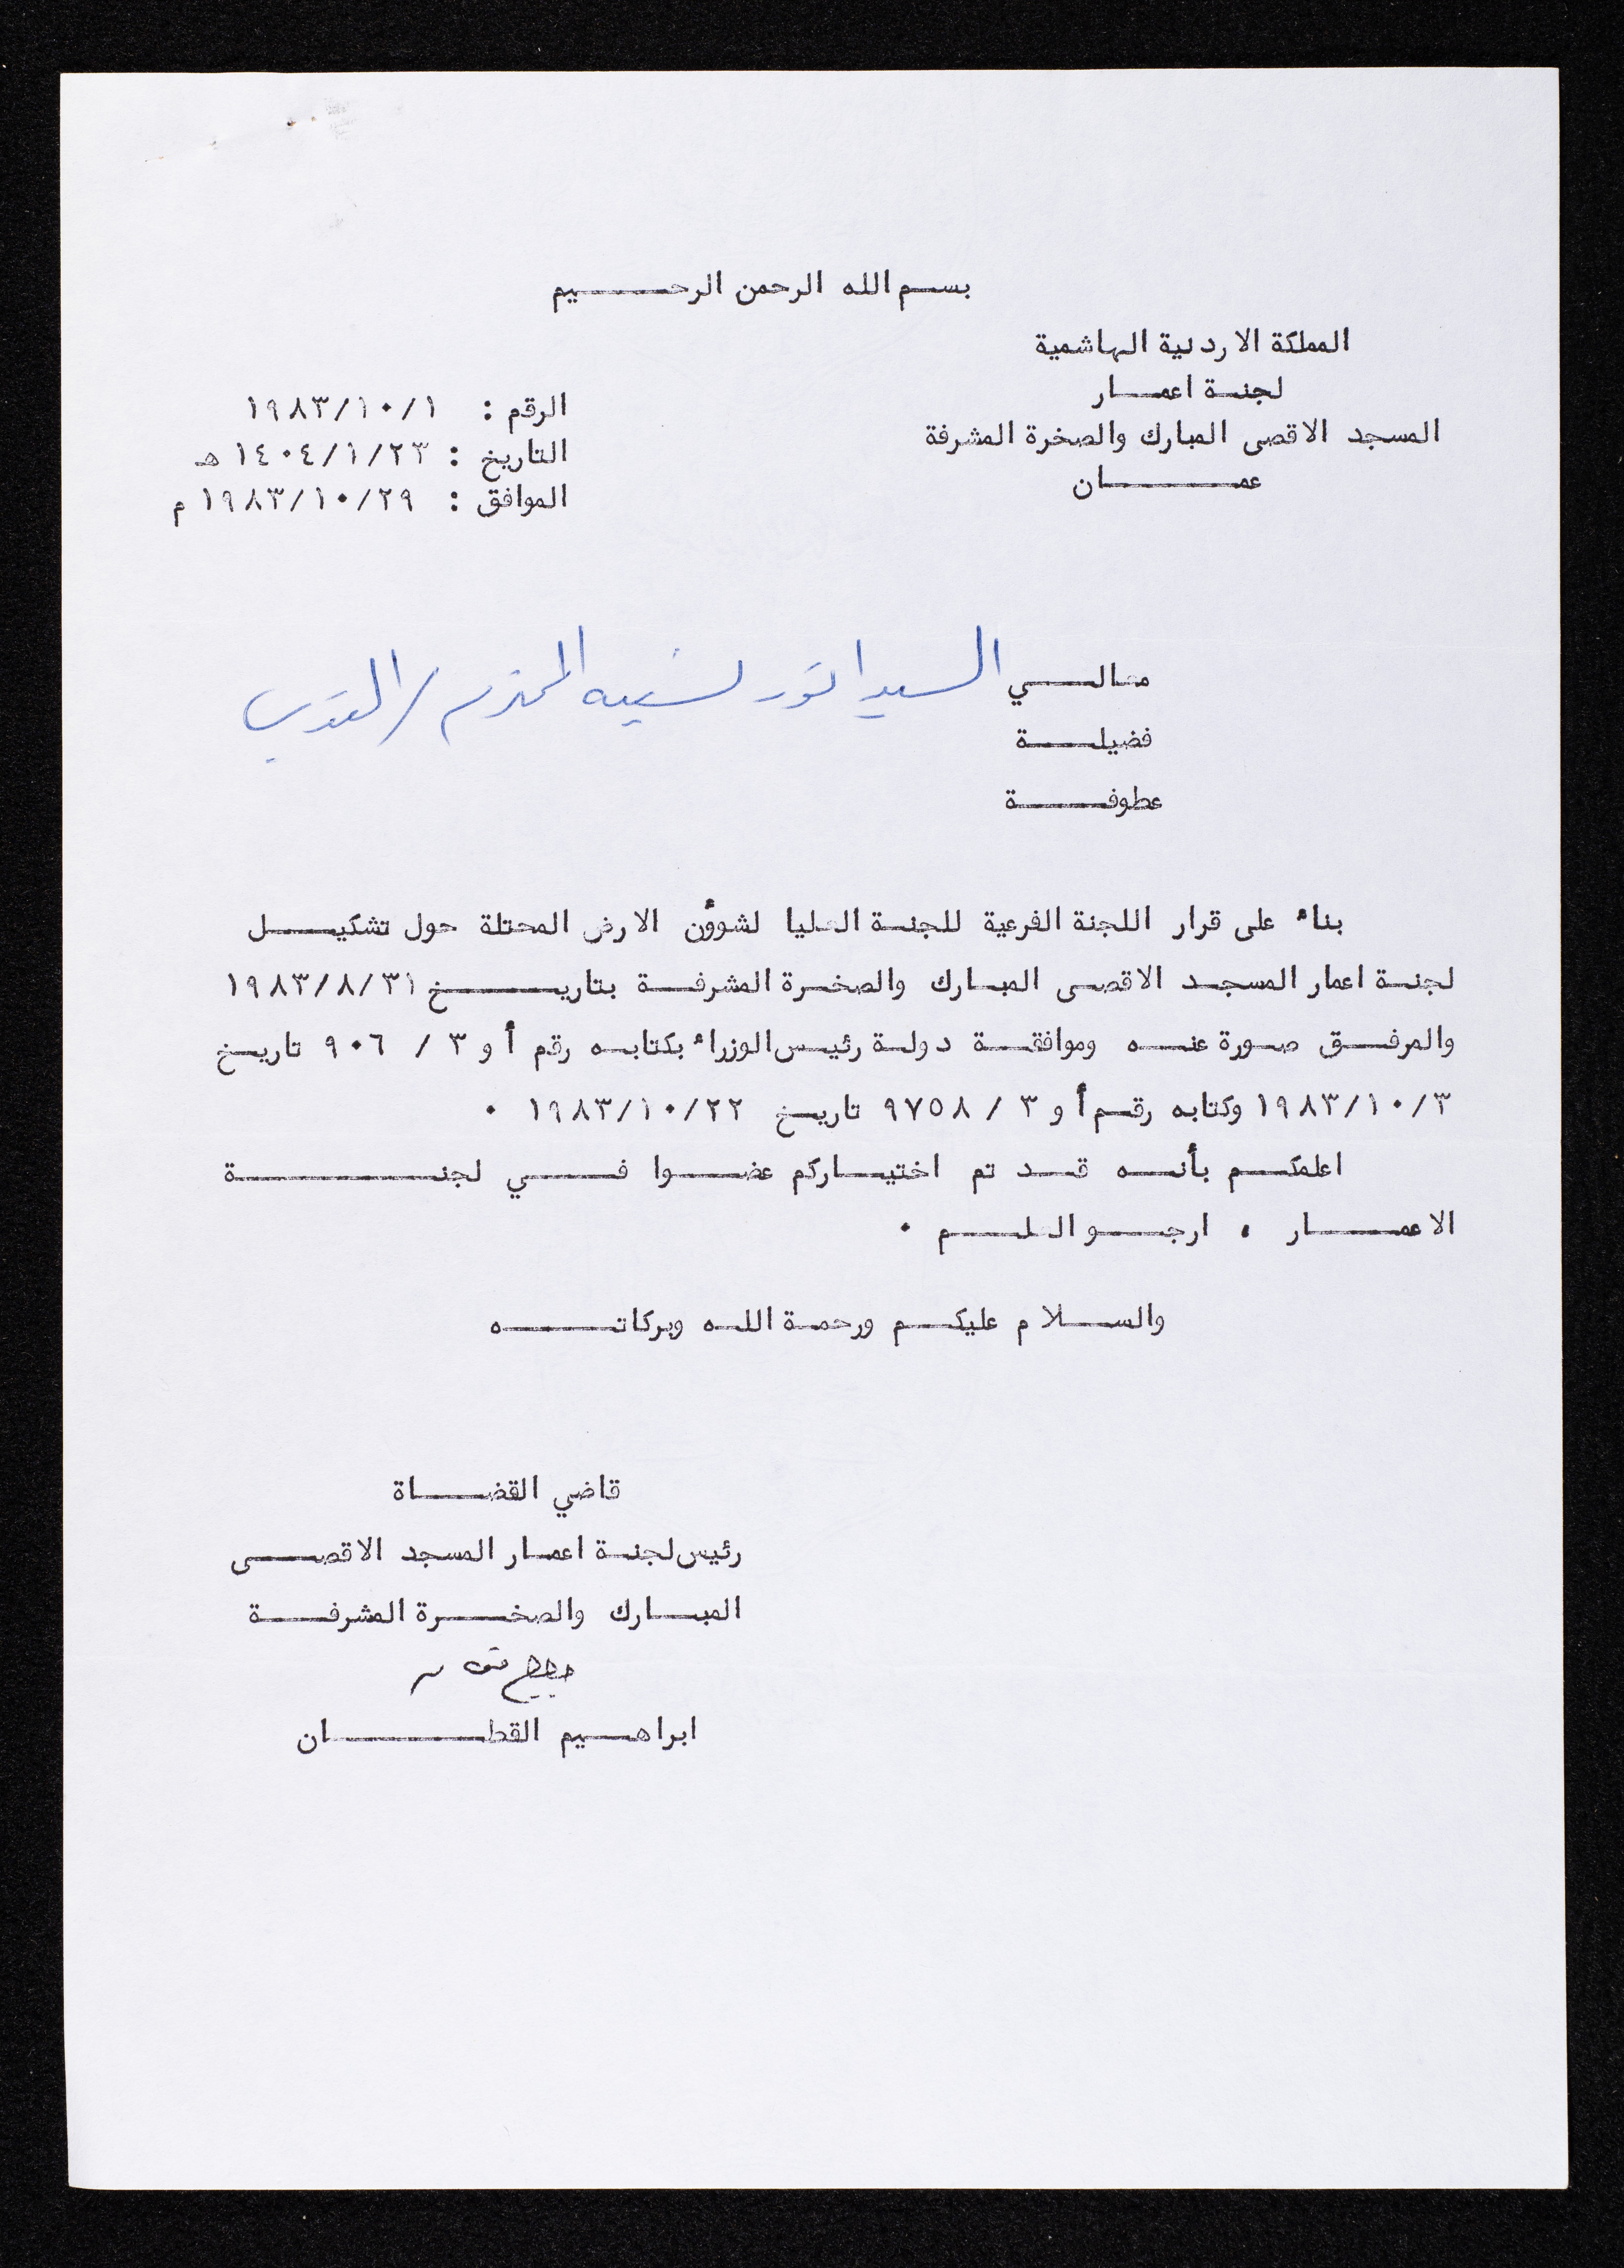 بسم الله الرحمن الرحيم
المملكة الاردنية الهاشمية
لجنة اعمار
المسجد الاقصى المبارك والصخرة المشرفة
عمان
الرقم : ١٩٨٣/١٠/١
التاريخ : ١٤٠٤/١/٢٣ هـ
الموافق : ١٩٨٣/١٠/٢٩ م
معالي السيد انور نسيبه المحترم / القدس
فضيلة
عطوفة
بناء على قرار اللجنة الفرعية للجنة العليا لشوؤن الارض المحتلة حول تشكيل
لجنة اعمار المسجد الاقصى المبارك والصخرة المشرفة بتاريخ ١٩٨٣/٨/٣١
والمرفق صورة عنه وموافقة دولة رئيس الوزراء بكتابه رقم أ و ٣ / ٩٠٦ تاريخ
١٩٨٣/١٠/٣ وكتابه رقم أ و ٣ / ٩٧٥٨ تاريخ ١٩٨٣/١٠/٢٢ .
اعلمكم بأنه قد تم اختياركم عضوا في لجنة
الاعمار ، ارجو العلم .
والسلام عليكم ورحمة الله وبركاته
قاضي القضاة
رئيس لجنة اعمار المسجد الاقصى
المبارك والصخرة المشرفة
ابراهيم القطان